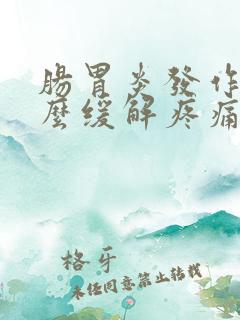 腸胃炎發作
麼緩解疼痛
格牙
未经同意禁止转载